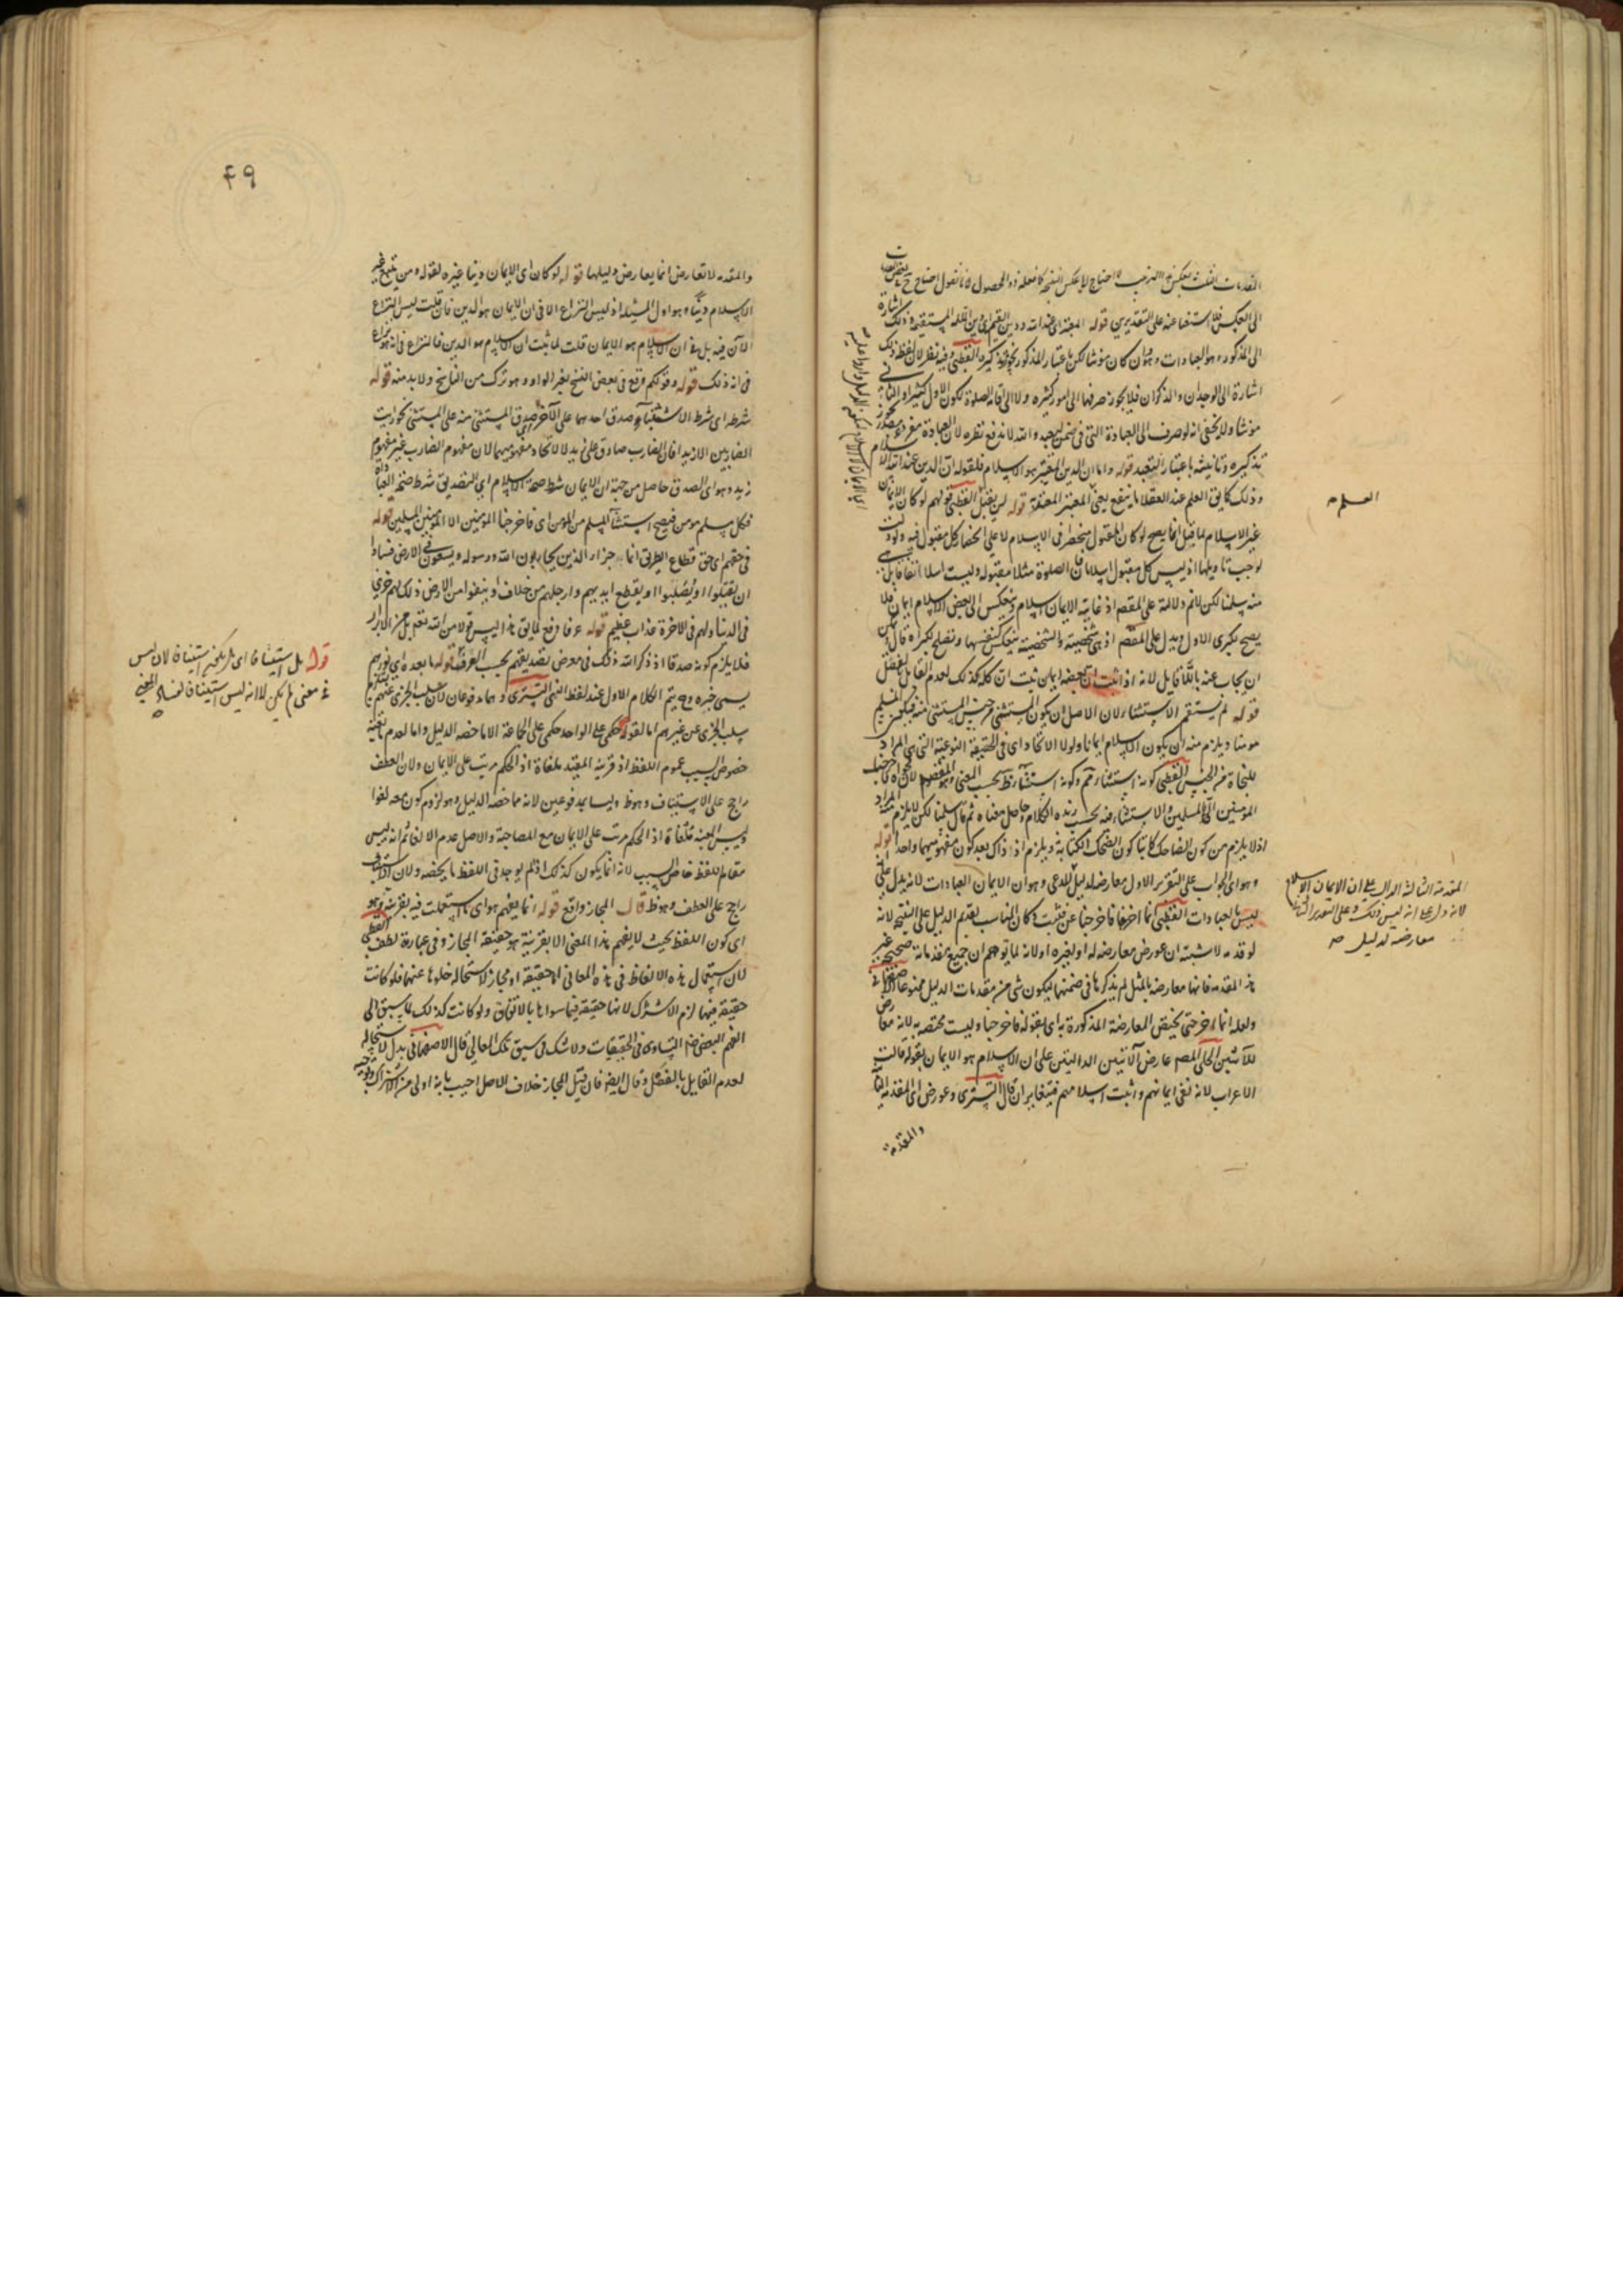 الى العكس فلا استغنا عنه على التقديرين قوله المعتبر عند الله ودين القيم اى دين الملة المستقيمة وذلك اشارة
الى المذكور وهو العبادات وهو وان كان مؤنثا لكن باعتبار المذكور يجوز تذكيره القطبى وفيه نظر لان لفظ ذلك
اشارة الى الوحدان والذكران فلا يجوز صرفها الى امور كثيرة ولا الى اقامة الصلوة لكون الاول كثيرا والثانى
مؤنثا ولا يخفى انه لو صرف الى العبادة التى فى ضمن ليعبدوا الله لاندفع نظره لان العبادة مفرد
تذكيره وتانيثه باعتبار التعبد قوله واما ان الدين المعتبر هو الاسلام فلقوله ان الدين عند الله الاسلام
وذلك كما يق العلم عند العقلا ما ينفع يعنى المعتبر المعتقة قوله لن يقبل القطبى قولهم لو كان الايمان
غير الاسلام لما قبل انما يصح لو كان المقبول منحصرا فى الاسلام لا على انحصار كل مقبول فيه
لوجب تاويلها اذ ليس كل مقبول اسلاما فان الصلوة مثلا مقبولة وليست اسلاما
منه سلمنا لكن لانم دلالته على المقصد اذ غايته الايمان اسلام وينعكس الى بعض الاسلام ايمان فلا
يصح لكبرى الاول ويدل على المقصم اذ هى شخصية والشخصية ينعكس كنفسها وتصلح لكبراه قال
ان يجاب عنه بان لا قايل لانه اذا ثبت ان بعضه ايمان ثبت ان كله كذلك لعدم القايل بالفصل
قوله لم يستقم الاستثناء لان الاصل ان يكون المستثنى من جنس المستثنى منه فيكون المسلم
مومنا ويلزم منه ان يكون الاسلام ايمانا ولولا الاتحاد اى فى الحقيقة النوعية التى هى المراد
المومنين الا المسلمين والاستثناء منه بحسب هذه الكلام وحاصل معناه ثم قال سلمنا لكن لا يلزم
اذ لا يلزم من كون الضاحك كاتبا كون الضحك الكتابة ويلزم اذ ذاك بعد كون مفهوميهما واحدا قوله
وهو اى الجواب على التقرير الاول معارضة لدليل المدعى وهو ان الايمان العبادات لانه يدل على
ليس العبادات القطبى انما اخرها فاخرجنا عن فثبت وكان المناسب تقديم الدليل على النتيجة لانه
لو قدمه لاشبه ان عورض معارضة له او لغيره او لانه لما توهم ان جميع مقدماته صحيحة غير
هذه المقدمة فانها معارضة بالمثل لم يذكرها فى ضمنها ليكون شى من مقدمات الدليل ممنوعا
ولعله انما اخر حتى يختص المعارضة المذكورة به اى بقوله فاخرجنا وليست مختصة به لانه
للآيتين الحلى المصم عارض الآيتين الدالتين على ان الاسلام هو الايمان بقوله قالت
الاعراب لانه نفى ايمانهم واثبت اسلامهم فيتغايران قال التسترى وعورض اى المقدمة
والمقدمة
العلم
المقدمة الثالثة الدالة على ان الايمان الاسلام
لانه دل على انه ليس ذلك وعلى التقرير الثانى
معارضة لدليل
٤٩
والمقدمة لا تعارض انما يعارض دليلها قوله لو كان اى الايمان دينا غيره لقوله ومن يتبع غير
الاسلام دينا وهو اول المسئلة اذ ليس النزاع الا فى ان الايمان هو الدين فان قلت ليس النزاع
الآن فيه بل فى ان الاسلام هو الايمان قلت لما ثبت ان الاسلام هو الدين فالنزاع فى انه هو نزاع
فى انه ذلك قوله وقولكم وقع فى بعض النسخ بغير الواو وهو ترك من الناسخ ولا بد منه قوله
شرطه اى شرط الاستثناء صدق احدهما على الآخر اى صدق المستثنى منه على المستثنى نحو رايت
الضاربين الا زيدا فان الضارب صادق على زيد لا لاتحاد مفهوميهما لان مفهوم الضارب غير مفهوم
زيد وهو اى الصدق حاصل من جهة ان الايمان شرط صحة الاسلام اى التصديق شرط صحة العبادة
فكل مسلم مومن فيصح استثناء المسلم من المومن اى فاخرجنا المومنين الا المومنين المسلمين قوله
فى حقهم اى حق قطاع الطريق انما جزاء الذين يحاربون الله ورسوله ويسعون فى الارض فسادا
ان يقتلوا او يصلبوا او يقطع ايديهم وارجلهم من خلاف او ينفوا من الارض ذلك لهم خزى
فى الدنيا ولهم فى الاخرة عذاب عظيم قوله
فلا يلزم كونه صدقا اذ ذكر الله ذلك فى معرض تصديقهم بحسب العرف قوله ما بعده اى نورهم
يسعى خبره وح يتم الكلام الاول عند لفظ النبى التسترى وهما مدفوعان لان سلب الخزى عنهم
سلب الخزى عن غيرهم اما لقوله حكمى على الواحد حكمى على الجماعة الا ما خصه الدليل واما لعدم
خصوص السبب عموم اللفظ اذ قرينة المعية ملغاة اذ الحكم مرتب على الايمان ولان العطف
راجح على الاستيناف وهو ظ وليسا بمدفوعين لانه مما خصه الدليل وهو لزوم كون معه لغوا
وليس المعية ملغاة اذ الحكم مرتب على الايمان مع المصاحبة والاصل عدم الالغا ثم انه ليس
مقام للفظ خاص السبب لانه انما يكون كذلك اذ لم يوجد فى اللفظ ما يخصه ولان الاستيناف
راجح على العطف وهو ظ قال المجاز واقع قوله انما يفهم هو اى ما استعملت فيه بقرينة وهو
اى كون اللفظ بحيث لا يفهم هذا المعنى الا بقرينة هو حقيقة المجاز وفى عبارة لطف القطبى
لان استعمال هذه الالفاظ فى هذه المعانى اما حقيقة او مجاز لاستحالة خلوها عنهما فلو كانت
حقيقة فيها لزم الاشتراك لانها حقيقة فيما سواها بالاتفاق ولو كانت كذلك لما سبق الى
الفهم البعض ضرورة التساوى فى الحقيقيات ولا شك فى سبق تلك المعانى قال الاصفهانى بدل لاستحالة
لعدم القايل بالفصل وقال ايضا فان قيل المجاز خلاف الاصل اجيب بانه اولى من الاشتراك
قوله بل استينافا اى بل يكون استينافا لان ليس